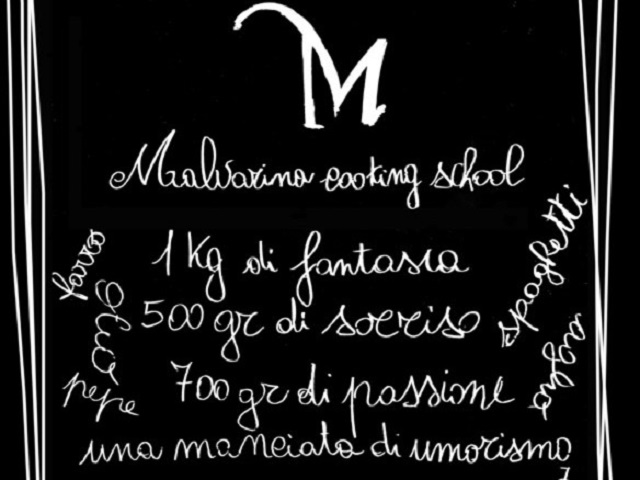 M
Malvarina cooking school
1 Kg di fantasia
500 gr di sorriso
700 gr di passione
una manciata di umorismo
farro
olio
pepe
spaghetti
aglio